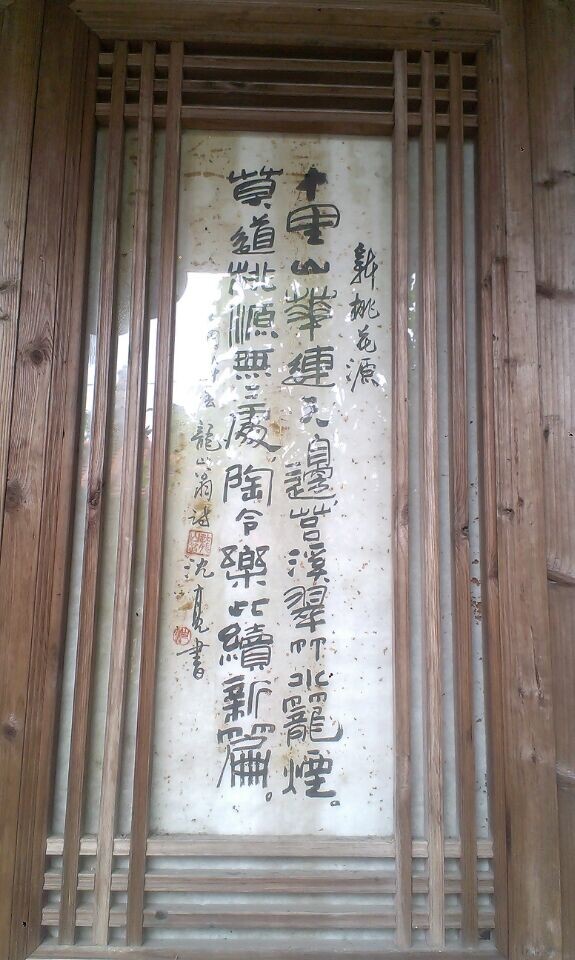 新桃花源
十里山華連天邊苕溪翠竹水籠煙。
莫道桃源無處陶令樂此續新篇。
龍山翁詩
沈亮書